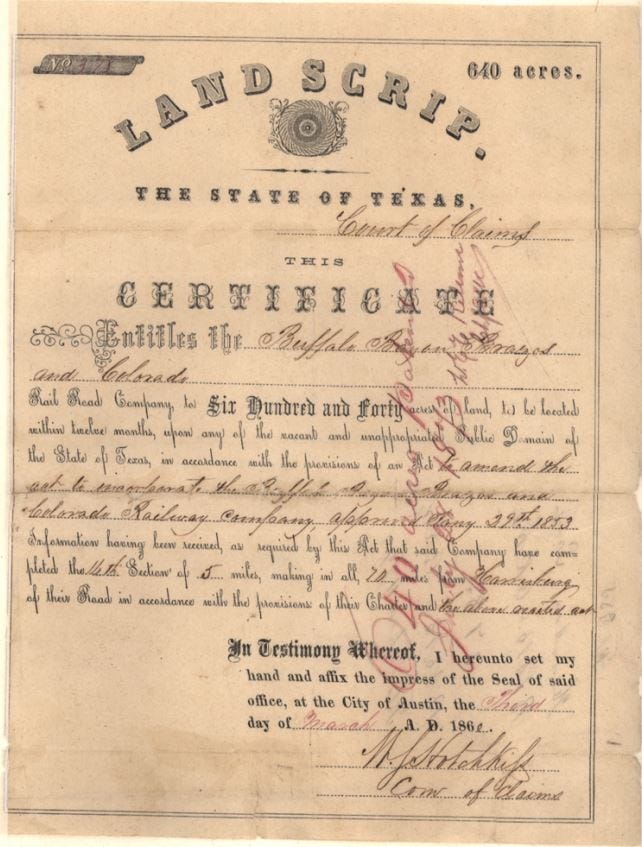 No 171
640 acres.
LAND SCRIP.
THE STATE OF TEXAS,
Court of Claims
THIS
CERTIFICATE
Entitles the Buffalo Bayou Brazos
and Colorado
Rail Road Company, to Six Hundred and Forty acres of land, to be located
within twelve months, upon any of the vacant and unappropriated Public Domain of
the State of Texas, in accordance with the provisions of an Act to amend the
act to incorporate the Buffalo Bayou Brazos and
Colorado Railway company approved Jany 29th 1853
Information having been received, as required by this Act that said Company have com-
pleted the 14th Section of 5 miles, making in all, 70 miles from Harrisburg
of their Road in accordance with the provisions of their Charter and the above recited act
In Testimony Whereof, I hereunto set my
hand and affix the impress of the Seal of said
office, at the City of Austin, the Third
day of March A. D. 1860.
W. S. Hotchkiss
Com of Claims
640 acres Patented
July 1873